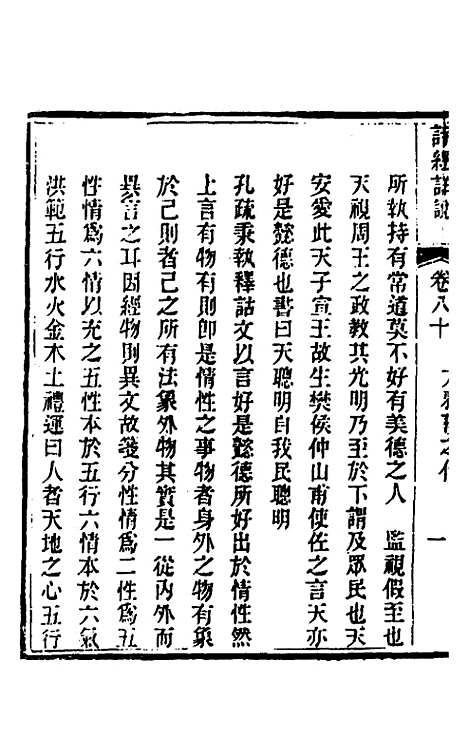 詩經詳說
卷八十
一
所執持有常道莫不好有美德之人　監視假至也
天視周王之政教其光明乃至於下謂及眾民也天
安愛此天子宣王故生樊侯仲山甫使佐之言天亦
好是懿德也書曰天聰明自我民聰明
孔疏秉執釋詁文以言好是懿德所好出於情性然
上言有物有則卽是情性之事物者身外之物有象
於己則者己之所有法象外物其實是一從內外而
異言之耳因經物則異文故箋分性情爲二性爲五
性情爲六情以充之五性本於五行六情本於六氣
洪範五行水火金木土禮運曰人者天地之心五行